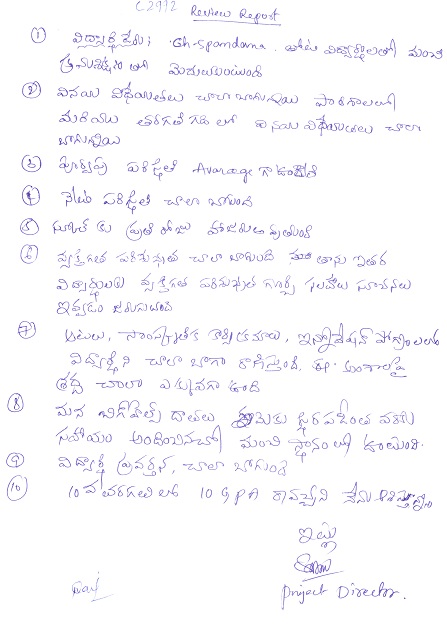 C2972 Review Report
① విద్యార్థి పేరు: Ch. Spandana. తోటి విద్యార్థులతో మంచి
క్రమశిక్షణ తో మెదులుకుంటుంది
② వినయ విధేయతలు చాలా బాగున్నాయి పాఠశాలలో
మరియు తరగతి గది లో వినయ విధేయతలు చాలా
బాగున్నాయి
③ పూర్వపు పరిస్థితి Avarage గా ఉండేది
④ నేటి పరిస్థితి చాలా బాగుంది
⑤ స్కూల్ కు ప్రతి రోజు హాజరు అవుతుంది
⑥ వ్యక్తిగత పరిశుభ్రత చాలా బాగుంది తాను ఇతర
విద్యార్థులకు వ్యక్తిగత పరిశుభ్రత గూర్చి సలహాలు సూచనలు
ఇవ్వడం జరుగుతుంది
⑦ ఆటలు, సాంస్కృతిక కార్యక్రమాలు, పోటీలలో
విద్యార్థిని చాలా బాగా రాణిస్తుంది. ఈ అంశాలపై
శ్రద్ధ చాలా ఎక్కువగా ఉంది
⑧ మన దాతలు ఈమెకు స్థిరపడేంత వరకు
సహాయం అందించినచో మంచి స్థానం లో ఉంటుంది.
⑨ విద్యార్థి ప్రవర్తన, చాలా బాగుంది
⑩ 10 వ తరగతి లో 10 GPA రావచ్చని నేను ఆశిస్తున్నాను
ఇట్లు
Project Director.